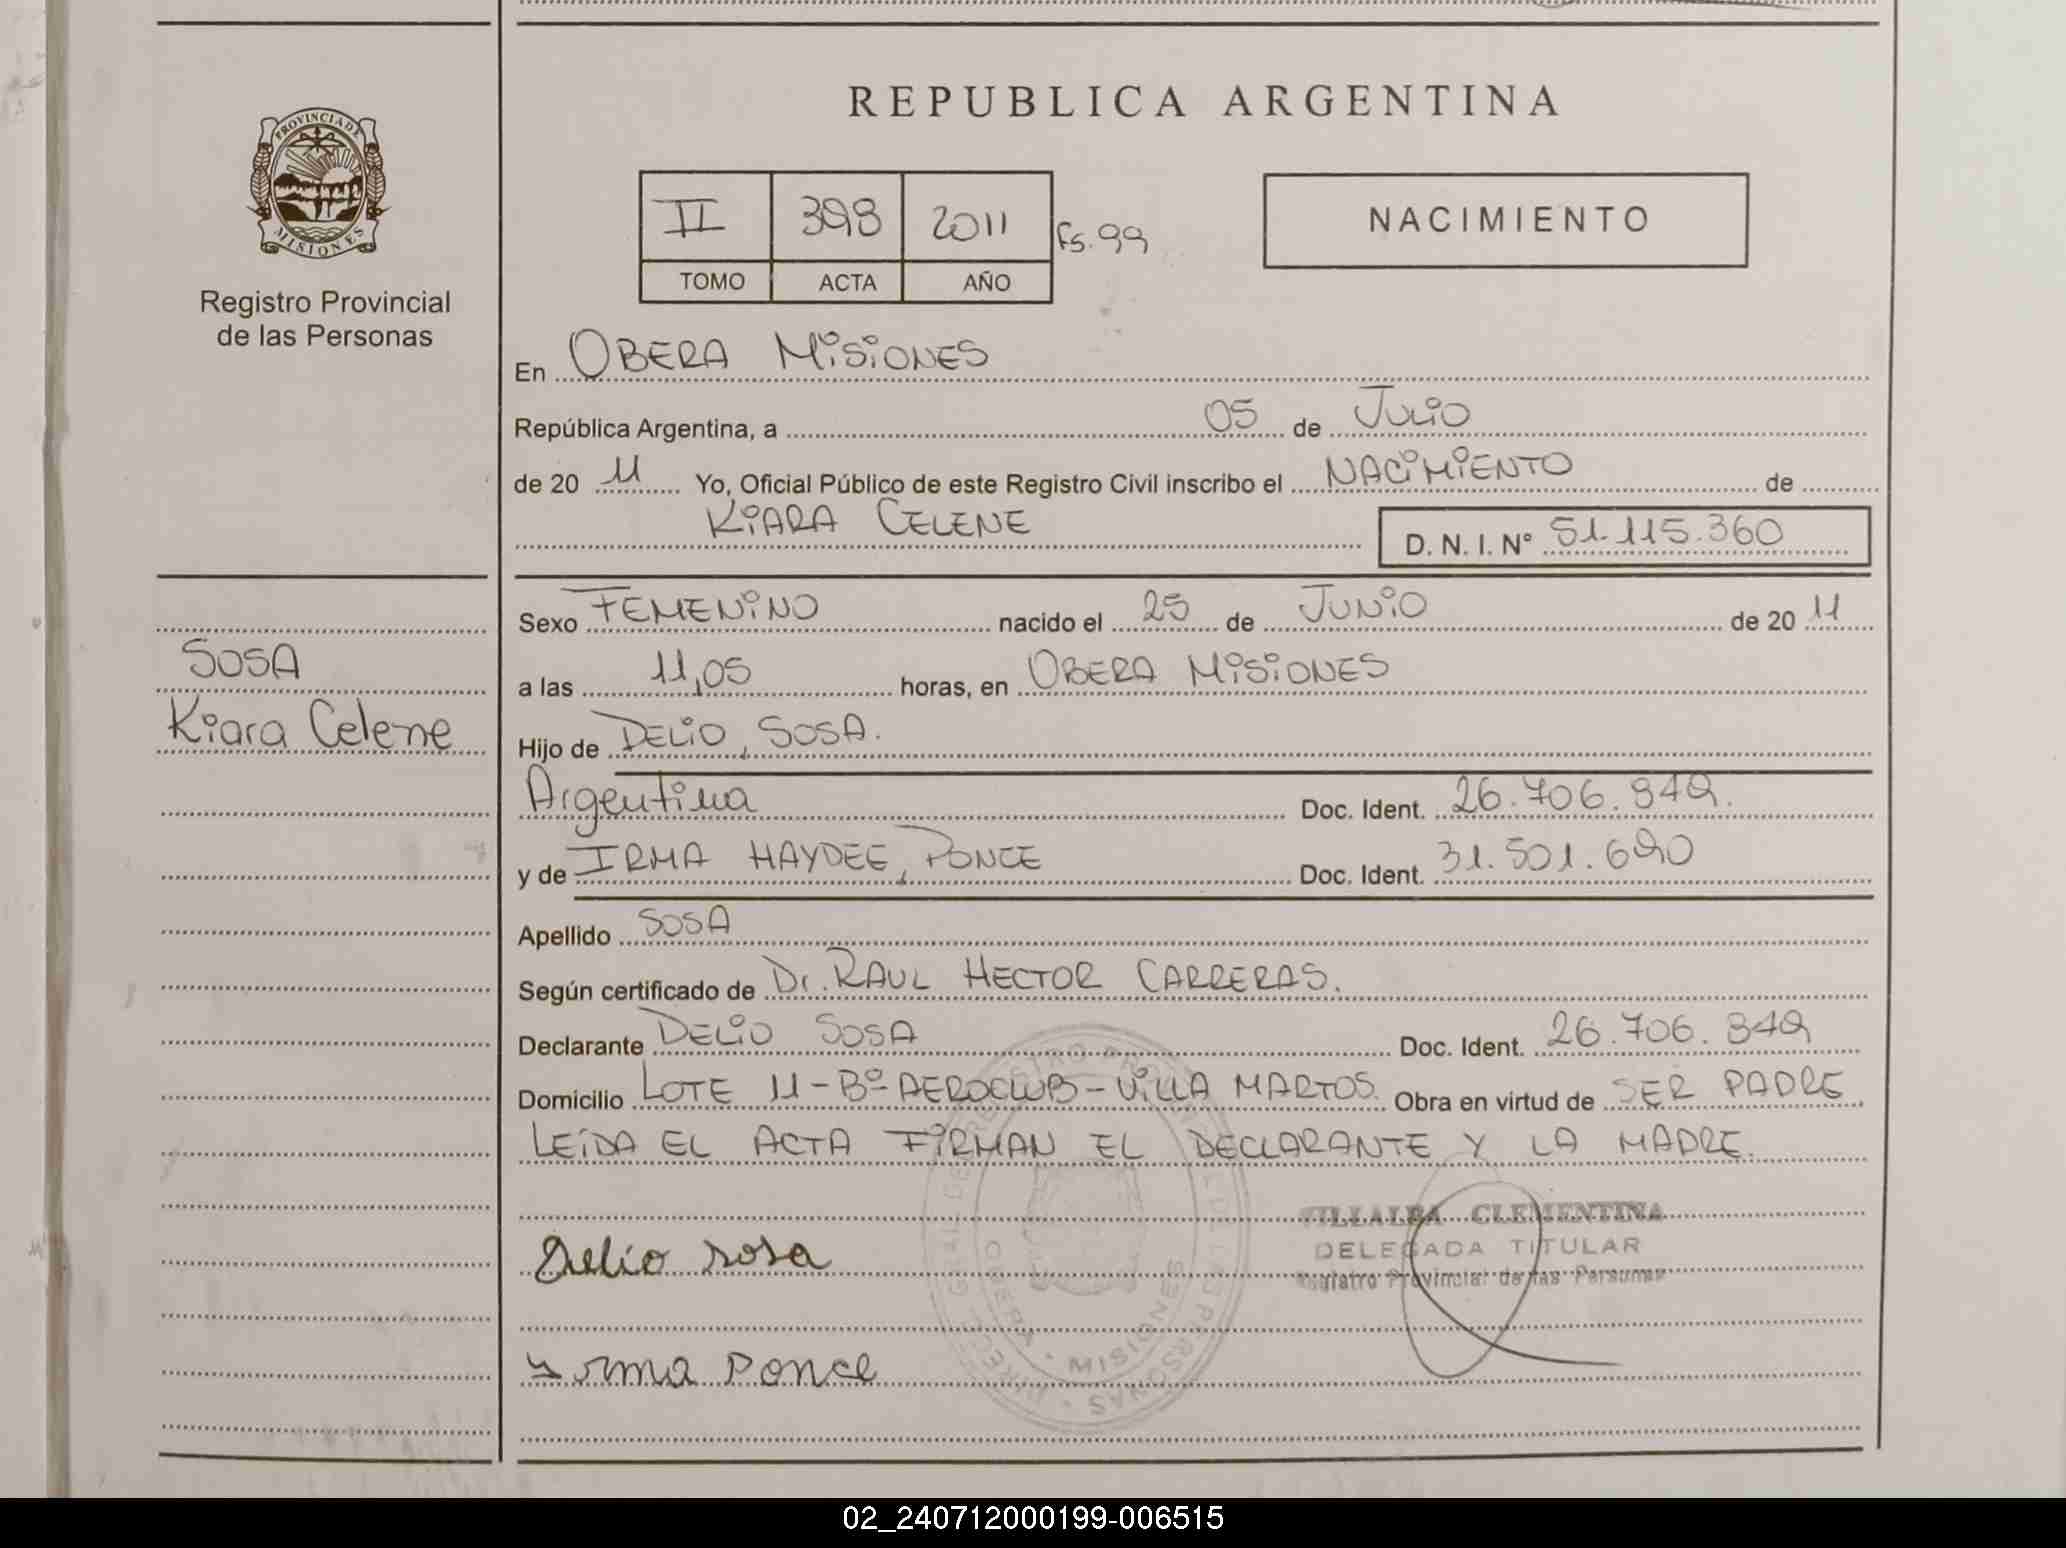 REPUBLICA ARGENTINA
PROVINCIA DE
MISIONES
Registro Provincial
de las Personas
II 398 2011 Fs. 99
TOMO ACTA AÑO
NACIMIENTO
En OBERA MISIONES
República Argentina, a 05 de JULIO
de 20 11 Yo, Oficial Público de este Registro Civil inscribo el NACIMIENTO de
KIARA CELENE D. N. I. N° 51.115.360
Sexo FEMENINO nacido el 25 de JUNIO de 20 11
SOSA
Kiara Celene
a las 11,05 horas, en OBERA MISIONES
Hijo de DELIO, SOSA.
Argentina Doc. Ident. 26.706.849.
y de IRMA HAYDEE, PONCE Doc. Ident. 31.501.690
Apellido SOSA
Según certificado de Dr. RAUL HECTOR CARRERAS.
Declarante DELIO SOSA Doc. Ident. 26.706.849
Domicilio LOTE 11 - Bº AEROCLUB - VILLA MARTOS. Obra en virtud de SER PADRE
LEIDA EL ACTA FIRMAN EL DECLARANTE Y LA MADRE.
VILLALBA CLEMENTINA
DELEGADA TITULAR
Registro Provincial de las Personas
Delio sosa
Irma Ponce
OBERA - MISIONES
02_240712000199-006515